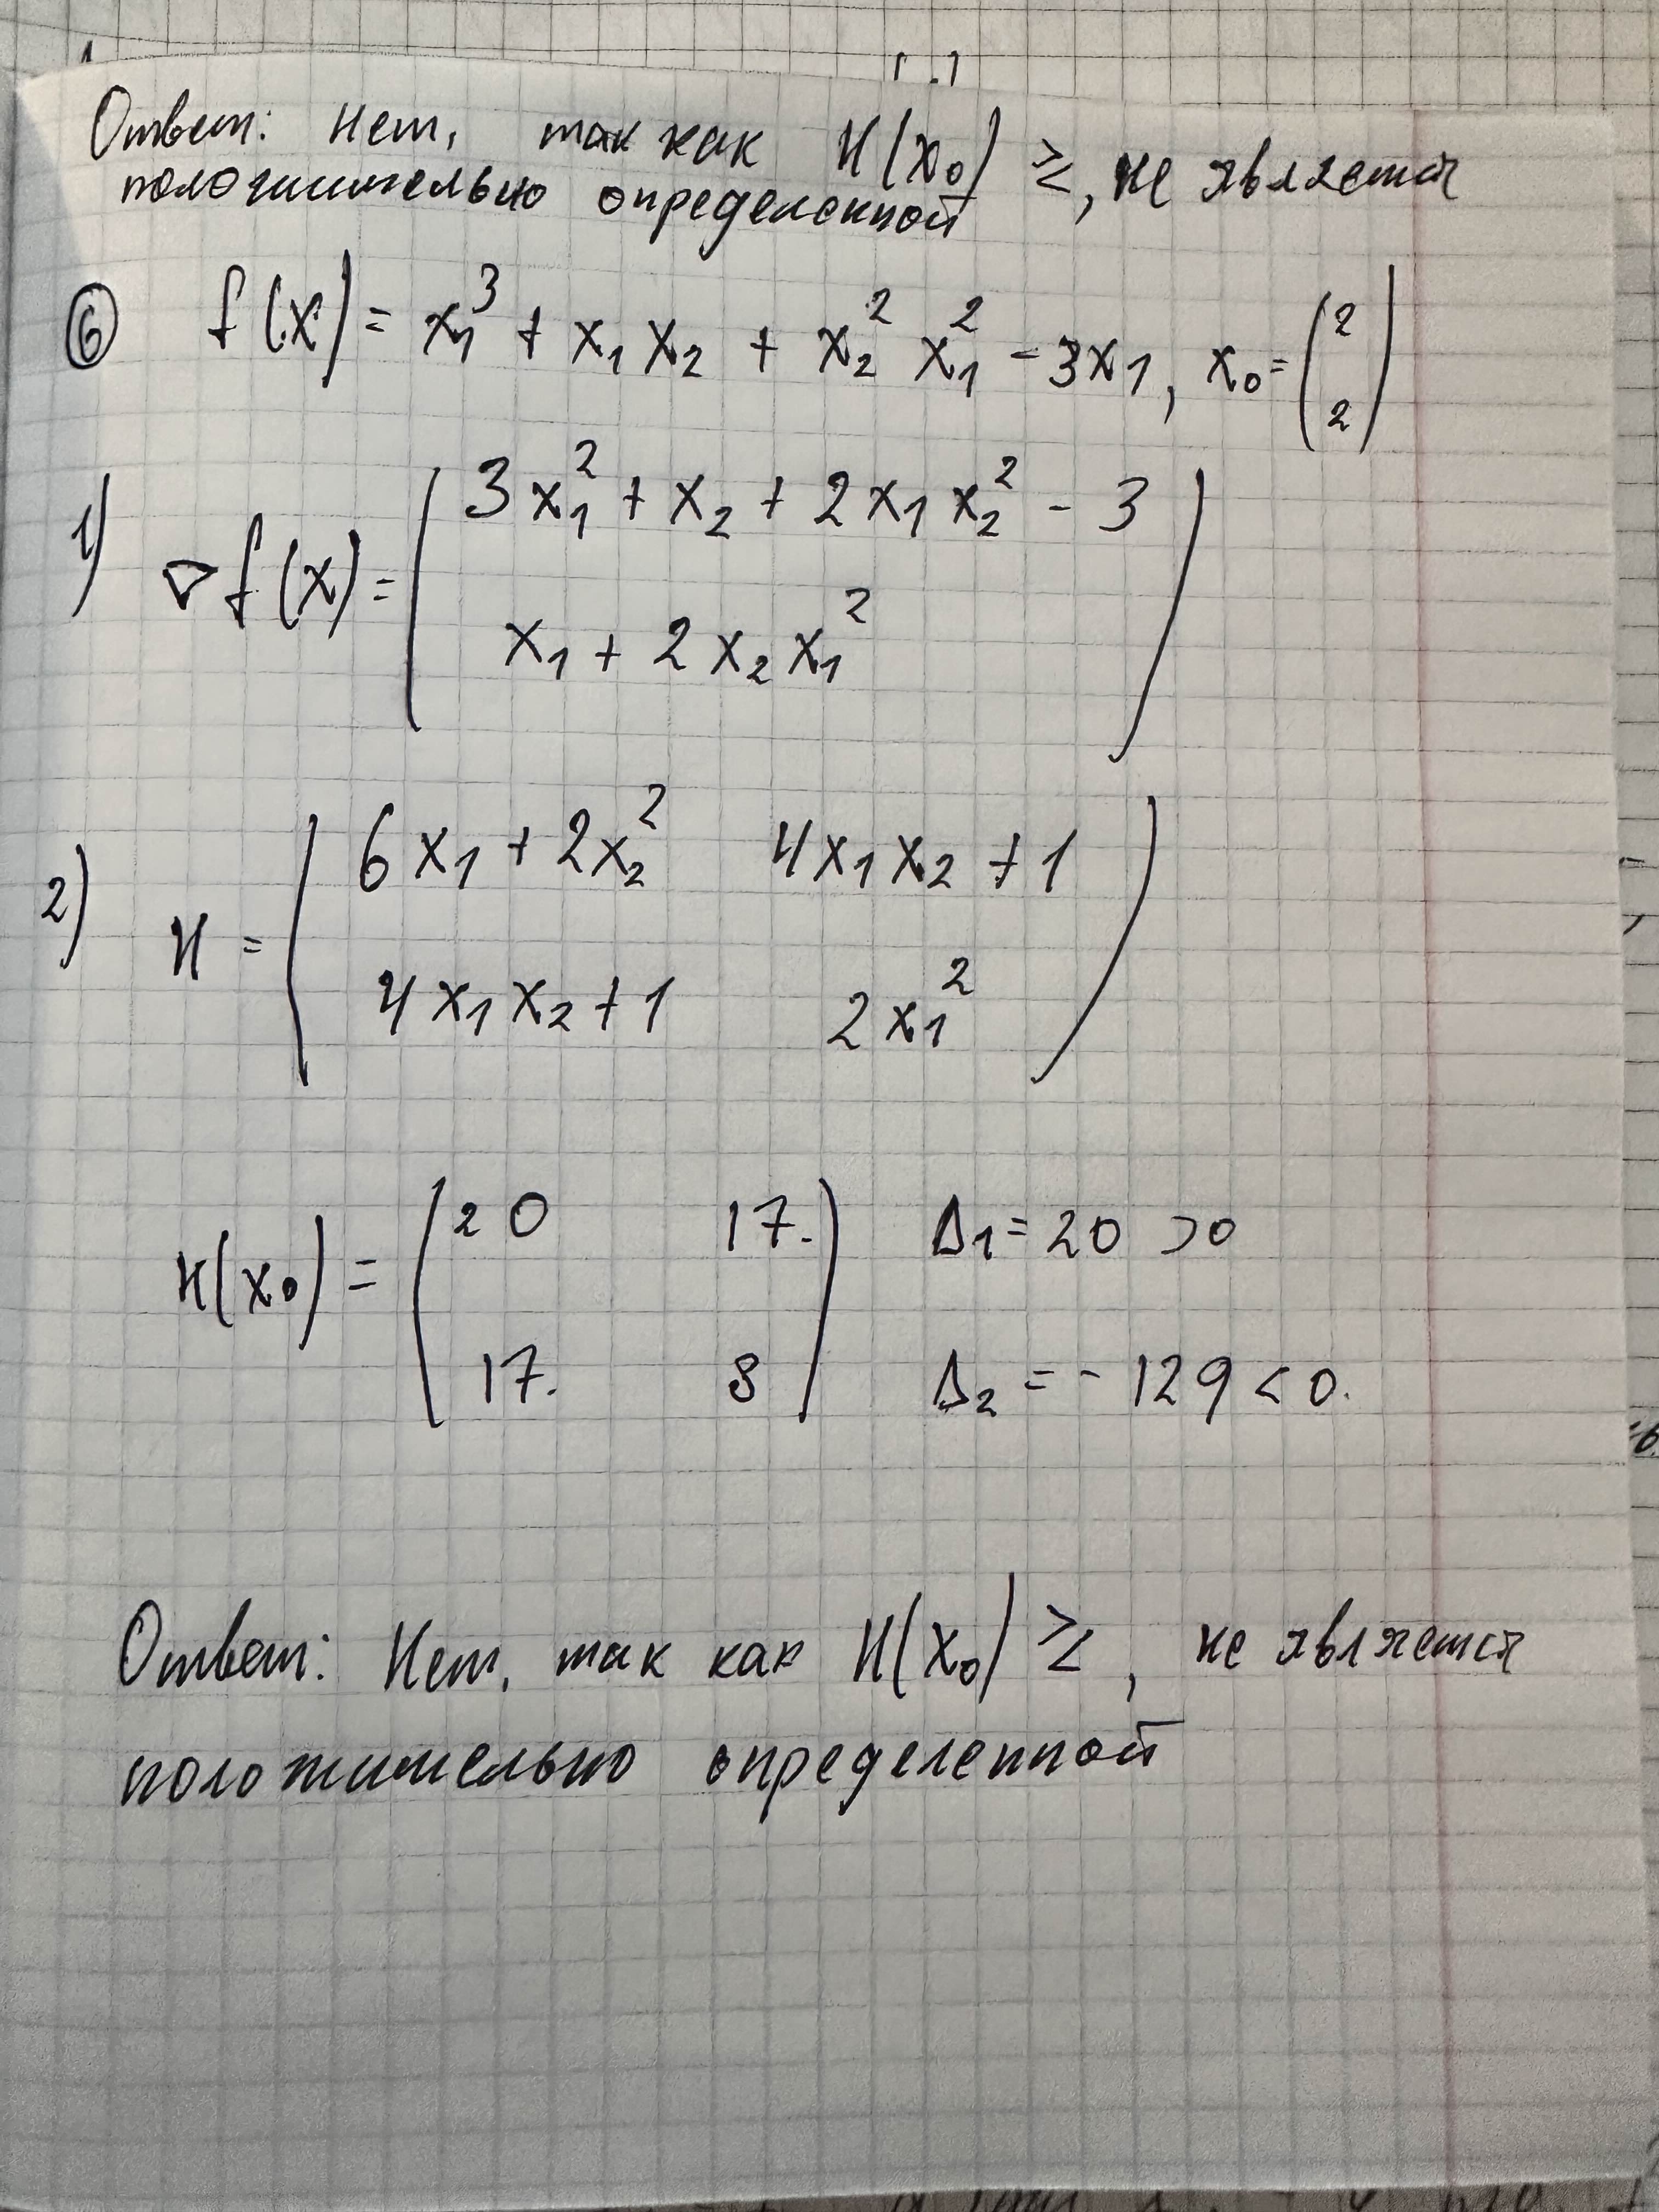 Ответ: Нет, так как H(x₀) ≥, не является
положительно определенной
⑥ f(x) = x₁³ + x₁x₂ + x₂² x₁² - 3x₁, x₀ = (2 2)
1) ∇f(x) = (3x₁² + x₂ + 2x₁x₂² - 3
x₁ + 2x₂x₁²)
2) H = (6x₁ + 2x₂² 4x₁x₂ + 1
4x₁x₂ + 1 2x₁²)
H(x₀) = (20 17. Δ₁ = 20 > 0
17. 8) Δ₂ = - 129 < 0.
Ответ: Нет, так как H(x₀) ≥, не является
положительно определенной